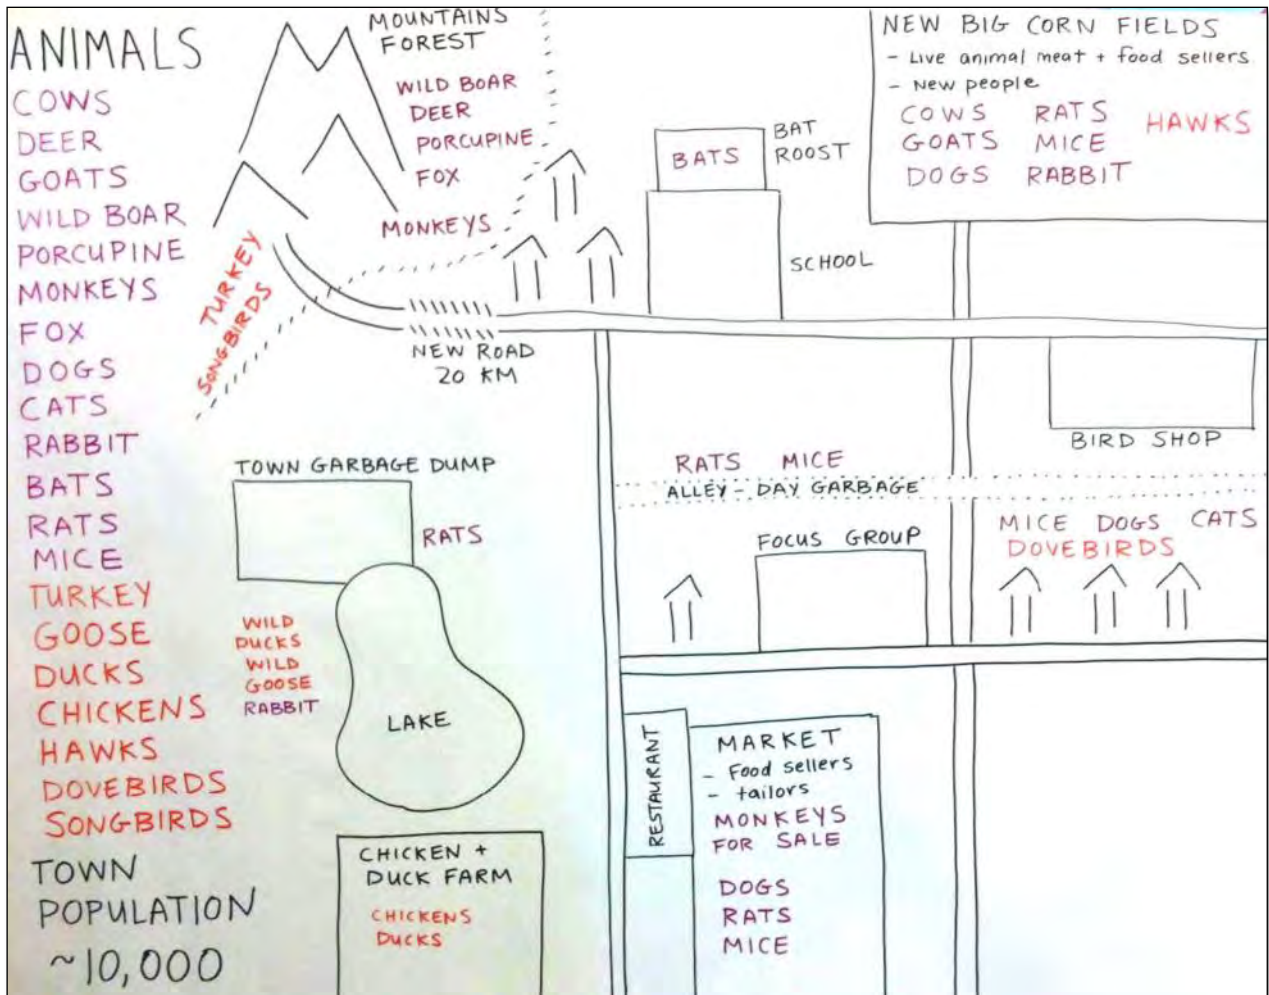 ANIMALS
COWS
DEER
GOATS
WILD BOAR
PORCUPINE
MONKEYS
FOX
DOGS
CATS
RABBIT
BATS
RATS
MICE
TURKEY
GOOSE
DUCKS
CHICKENS
HAWKS
DOVEBIRDS
SONGBIRDS
TOWN
POPULATION
~10,000
MOUNTAINS
FOREST
WILD BOAR
DEER
PORCUPINE
FOX
MONKEYS
TURKEY
SONGBIRDS
NEW ROAD
20 KM
BATS
BAT
ROOST
SCHOOL
NEW BIG CORN FIELDS
- Live animal meat + food sellers
- New people
COWS RATS
GOATS MICE
DOGS RABBIT
HAWKS
BIRD SHOP
TOWN GARBAGE DUMP
RATS
WILD
DUCKS
WILD
GOOSE
RABBIT
LAKE
CHICKEN +
DUCK FARM
CHICKENS
DUCKS
RATS MICE
ALLEY - DAY GARBAGE
FOCUS GROUP
MICE DOGS CATS
DOVEBIRDS
RESTAURANT
MARKET
- Food sellers
- tailors
MONKEYS
FOR SALE
DOGS
RATS
MICE